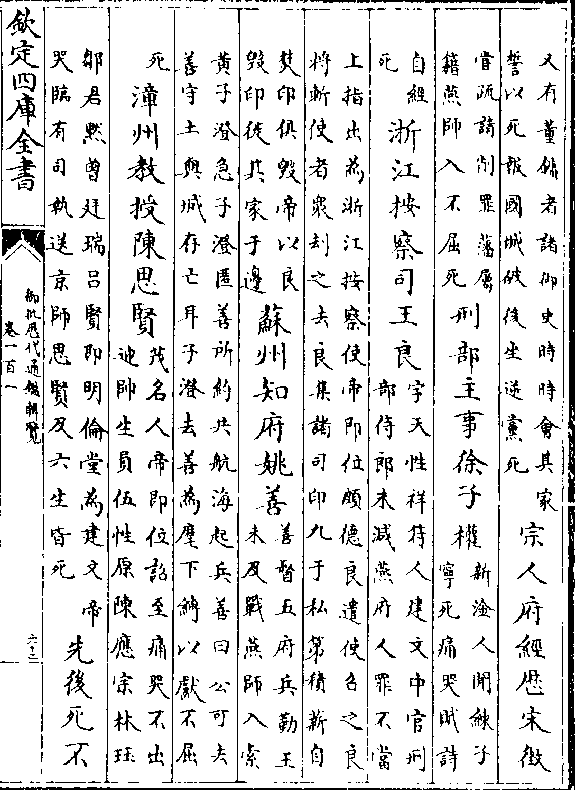 又有董鏞者諸御史時時會其家
誓以死報國城破後坐逆黨死
宗人府經歷宋徵
嘗疏請削罪藩屬
籍燕師入不屈死
刑部主事徐子權
新淦人聞練子
寧死痛哭賦詩
自經
死
浙江按察司王良
字天性祥符人建文中官刑
部侍郎末減燕府人罪不當
上指出為浙江按察使帝即位頗德良遣使召之良
將斬使者衆刦之去良集諸司印九于私第積薪自
焚印俱毀帝以良
毀印徙其家于邊
蘇州知府姚善
善督五府兵勤王
未及戰燕師入索
黃子澄急子澄匿善所約共航海起兵善曰公可去
善守土與城存亡耳子澄去善為麾下縛以獻不屈
死
漳州教授陳思賢
茂名人帝即位詔至痛哭不出
迎帥生員伍性原陳應宗林珏
鄒君黙曾廷瑞吕賢即明倫堂為建文帝
哭臨有司執送京師思賢及六生皆死
先後死不
欽定四庫全書
御批歷代通鑑輯覽
卷一百一
六十二